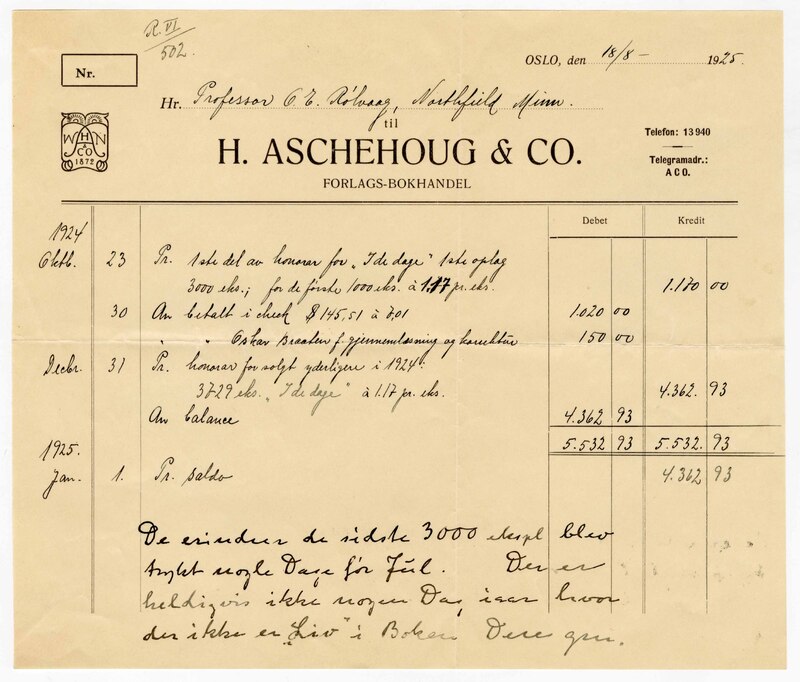 R. VI
502.
OSLO, den 18/8 - 1925.
Nr.
Hr. Professor O. E. Rölvaag, Northfield Minn.
til
W H N
A
& CO
1872
H. ASCHEHOUG & CO.
FORLAGS-BOKHANDEL
Telefon: 13 940
Telegramadr.:
ACO.
Debet Kredit
1924
Oktb. 23 Pr. 1ste del av honorar for „I de dage" 1ste oplag
3000 eks.; for de første 1000 eks. à 1.17 pr. eks. 1.170 00
30 An betalt i check $ 145,51 à 7,01 1.020 00
" " Oskar Braaten f. gjennemlæsning og korrektur 150 00
Decbr. 31 Pr. honorar for solgt yderligere i 1924:
3729 eks. „I de dage" à 1.17 pr. eks. 4.362. 93
An balance 4.362 93
5.532 93 5.532. 93
1925.
Jan. 1. Pr. saldo 4.362 93
De erindrer de sidste 3000 ekspl blev
trykt nogle Dage før Jul. Der er
heldigvis ikke nogen Dag, iaar hvor
der ikke er „Liv" i Boken Deres